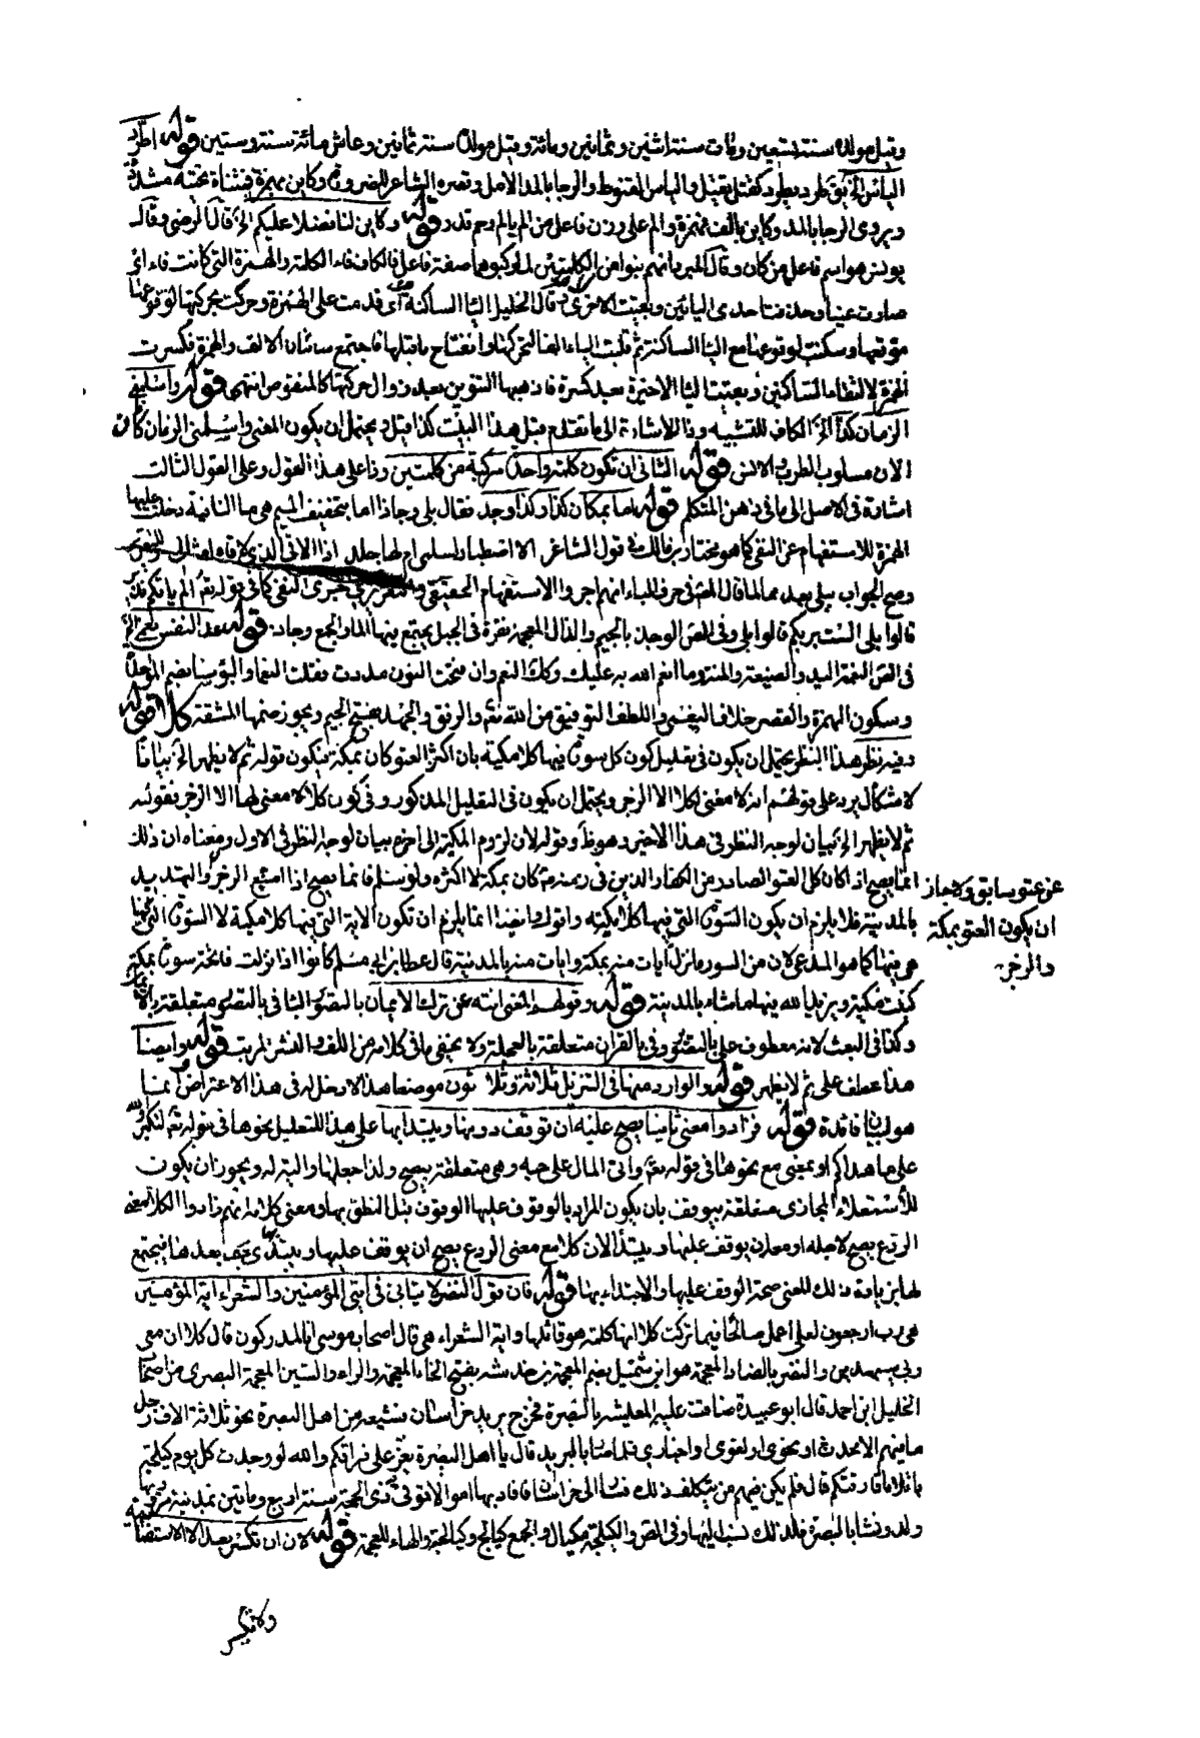 وقيل مولده سنة تسعين ومات سنة اثنين وثمانين ومائة وقيل مولده سنة ثمانين وعاش مائة سنة وستين قوله اطرد
الياس الخ يق طرد يطرد كقتل يقتل والياس القنوط والرجا بالمد الامل وقصره الشاعر للضرورة وكاين بهمزة فمثناة تحتية مشددة
ويروى الرجا بالمد وكاين بالف فهمزة والم على وزن فاعل من الم يالم وحم قدر قوله وكاين لنا فضلا عليكم الخ قال الرضى وقال
يونس هو اسم فاعل من كان وقال المبرد انهم بنوا من الكلمتين لما ركبوها صفة فاعل فالكاف فاء الكلمة والهمزة التي كانت فاء اي
صارت عينا وحذفت احدى اليائين وبقيت الاخرى وقال الخليل الياء الساكنة من اي قدمت على الهمزة وحركت بحركتها لوقوعها
موقعها وسكنت لوقوعها مع الياء الساكنة ثم قلبت الياء الفا لتحركها وانفتاح ما قبلها فاجتمع ساكنان الالف والهمزة فكسرت
الهمزة لالتقاء الساكنين وبقيت الياء الاخيرة بعد كسرة فاذهبها التنوين بعد زوال حركتها كالمنقوص انتهى قوله واسلمني
الزمان كذا الخ الكاف للتشبيه وذا للاشارة الى ما تقدم قبل هذا البيت كذا قيل ويحتمل ان يكون المعنى واسلمني الزمان كأني
الان مسلوب الطرب والانس قوله الثاني ان تكون كلمة واحدة مركبة من كلمتين وذا على هذا القول وعلى القول الثالث
اشارة في الاصل الى ما في ذهن المتكلم قوله اما بمكان كذا وكذا وجد فقال بلى وجاذا اما بتخفيف الميم هي ما النافية دخلت عليها
الهمزة للاستفهام عن النفي كما هو مختار بن مالك في قول الشاعر الا اصطبار لسلمى ام لها جلد اذا الاقي الذي لاقاه امثالي وللتقرير
وصح الجواب ببلى بعدهما لما قال المص في حرف الباء انهم اجروا الاستفهام الحقيقي والتقريري مجرى النفي كما في قوله تعالى الم ياتكم نذير
قالوا بلى الست بربكم قالوا بلى وفي المص الوجذ بالجيم والذال المعجمة نقرة في الجبل يجتمع فيها الماء والجمع وجاذ قوله عد النفس نعمى الخ
في المص النعمة اليد والصنيعة والمنة وما انعم الله به عليك وكذلك النعمى وان فتحت النون مددت فقلت النعما والبؤسى بضم الموحدة
وسكون الهمزة والقصر خلاف النعمى واللطف التوفيق من الله تعالى والرفق والجهد بفتح الجيم ويجوز ضمها المشقة كلا قوله
وفيه نظر هذا النظر يحتمل ان يكون في تعليل كون كل سورة فيها كلا مكية بان اكثر العتو كان بمكة فيكون قوله ثم لا يظهر الخ بيانا
لاشكال يرد على قولهم انه لا معنى لكلا الا الزجر ويحتمل ان يكون في التعليل المذكور وفي كون كلا لا معنى لها الا الزجر فقوله
ثم لا يظهر الخ بيان لوجه النظر في هذا الاخير وهو ظ وقوله لان لزوم المكية الى اخره بيان لوجه النظر في الاول ومعناه ان ذلك
انما يصح اذا كان كل العتو الصادر من الكفار الذين في زمنه كان بمكة لا اكثره ولو سلم فانما يصح اذا امتنع الزجر والتهديد
عن عتو سابق والا جاز
بالمدينة فلا يلزم ان يكون السورة التي فيها كلا مكية واقول وايضا انما يلزم ان تكون الاية التي فيها كلا مكية لا السورة التي
ان يكون العتو بمكة
هي فيها كما هو المدعى لان من السور ما نزل ايات منه بمكة وايات منه بالمدينة قال عطا بن ابي مسلم كانوا اذا نزلت فاتحة سورة بمكة
والزجر
كتبت مكية ويزيد الله فيها ما شاء بالمدينة قوله وقولهم المعنى انته عن ترك الايمان بالتصوير الثاني بالتصوير متعلقة بالايمان
وكذا في البعث لانه معطوف على بالتصوير وفي بالقران متعلقة بالعجلة ولا يخفى ما في كلامه من اللف والنشر المرتب قوله وايضا
هذا عطف على ثم لا يظهر قوله والوارد منها في التنزيل ثلاثة وثلاثون موضعا هذا لا دخل له في هذا الاعتراض انما
هو لبيان فائدة قوله فزادوا معنى ثانيا يصح عليه ان توقف دونها ويبتدا بها على هذا للتعليل نحوها في قوله تعالى لتكبروا الله
على ما هداكم او بمعنى مع نحوها في قوله تعالى واتى المال على حبه وهي متعلقة بيصح ولذا جعلها والبتة له ويجوز ان يكون
للاستعلاء المجازى متعلقة بيوقف بان يكون المراد بالوقوف عليها الوقوف قبل النطق بها ومعنى كلامه انهم زادوا لكلا معنى
الردع يصح لاجله او معه ان يوقف عليها ويبتدأ لان كلا مع معنى الردع يصح ان يوقف عليها ويبتدئ بها بعدها فيجتمع
لها بزيادة ذلك المعنى صحة الوقف عليها والابتداء بها قوله فان قول النضر لا يتاتى في ايتي المؤمنين والشعراء اية المؤمنين
هي رب ارجعون لعلي اعمل صالحا فيما تركت كلا انها كلمة هو قائلها واية الشعراء هي قال اصحاب موسى انا لمدركون قال كلا ان معي
ربي سيهدين والنضر بالضاد المعجمة هو ابن شميل بضم المعجمة بن خرشة بفتح الخاء المعجمة والراء والشين المعجمة البصرى من اصحاب
الخليل ابن احمد قال ابو عبيدة ضاقت عليه المعيشة بالبصرة فخرج يريد خراسان فشيعه من اهل البصرة نحو ثلاثة الاف رجل
ما فيهم الا محدث او نحوي او لغوي او اخباري فلما صار بالمربد قال يا اهل البصرة يعز علي فراقكم والله لو وجدت كل يوم كيلجة
باقلا ما فارقتكم قال فلم يكن فيهم من يتكلف ذلك فسار الى خراسان فافاد بها اموالا توفى في ذي الحجة سنة اربع ومايتين بمدينة مرو وبها
ولد ونشا بالبصرة فلذلك نسب اليها وفي المص والكيلجة مكيال والجمع كيالج وكيالجة والهاء للعجمة قوله لان ان تكسر بعد الا الاستفتاحية
ولا تكسر